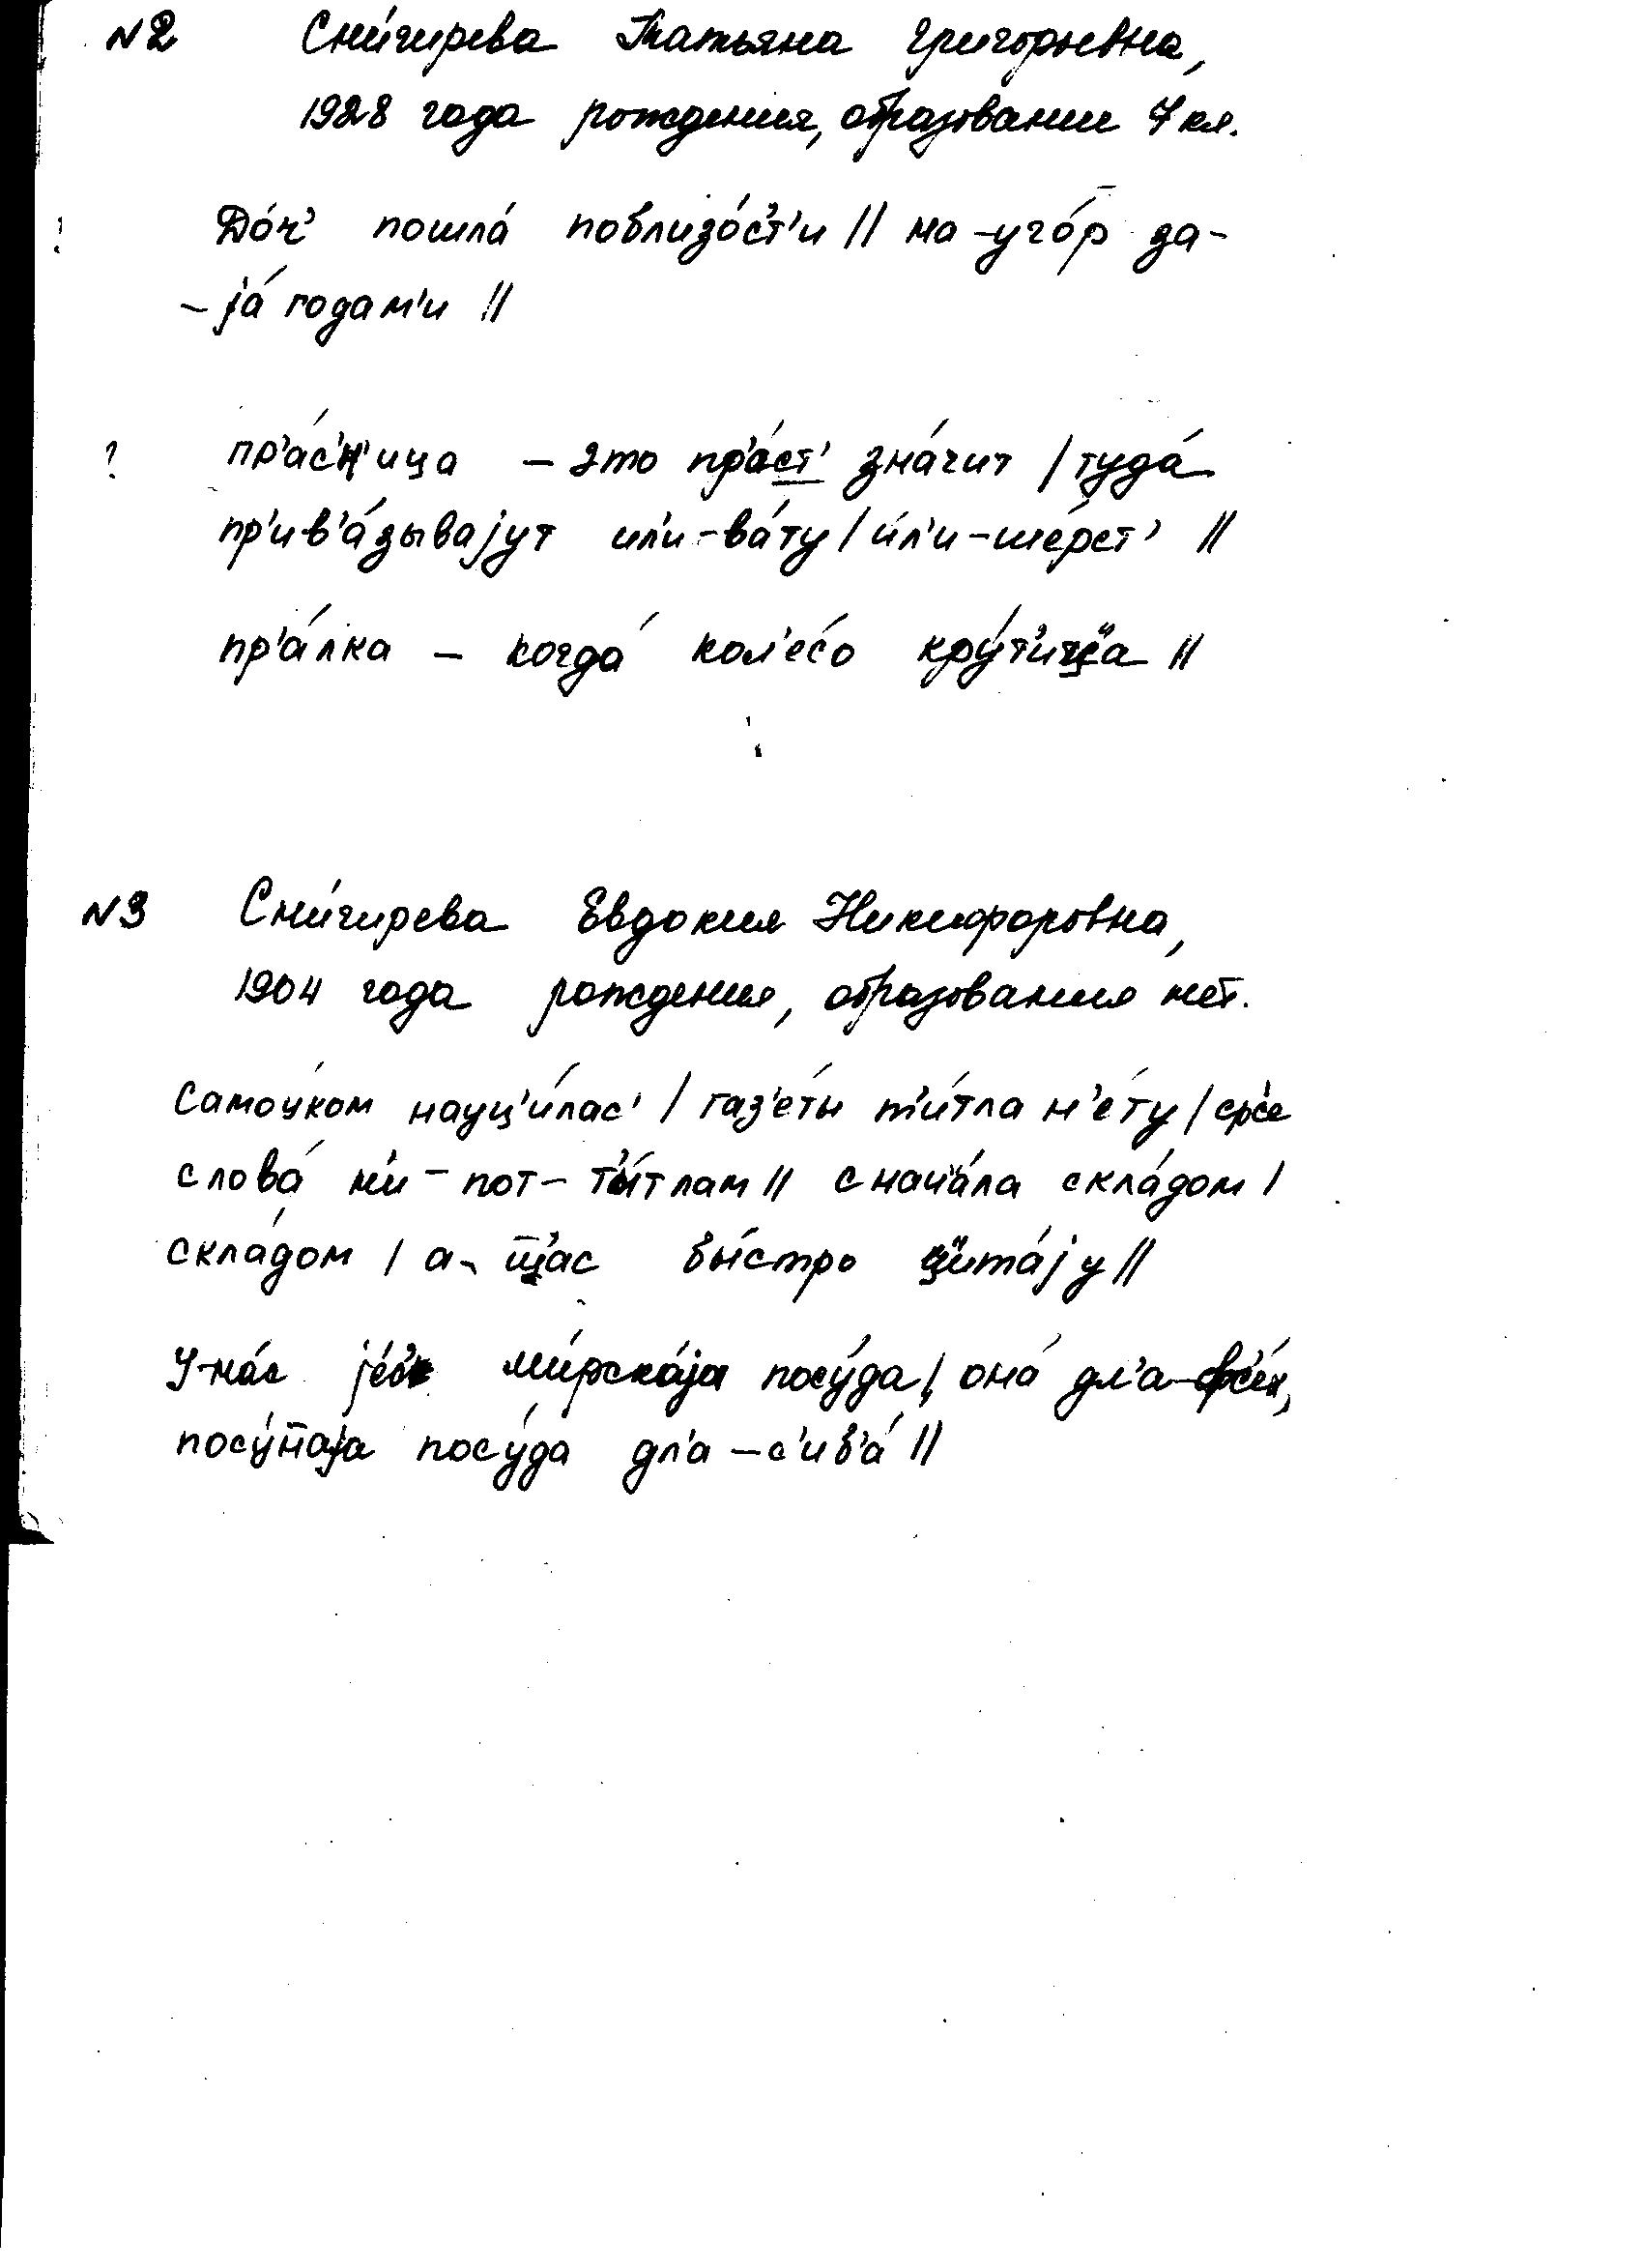 №2 Сни́гирева Татьяна Григорьевна,
1928 года рождения, образование 7 кл.
До́ч' пошла́ поблизо́с'т'и // на-уго́р за-
-jа́годам'и //
? пр'а́с'н'ица – это пр'а́ст' зна́чит / туда́
пр'ив'а́зываjут ил'и-ва́ту / и́л'и-ше́рст' //
пр'а́лка – когда́ кол'есо́ кру́т'ицца //
№3 Сни́гирева Евдокия Никифоровна,
1904 года рождения, образования нет.
Самоу́ком науц'и́лас' / газ'е́ты т'и́тла н'е́ту / фс'е
слова́ н'и-пот-т'и́тлам // снача́ла скла́дом /
скла́дом / а-щ'ас бы́стро ц'ита́jу //
У-на́с jес' ми́рскаjа посу́да / она́ дл'а-фс'е́х,
посу́таjа посу́да дл'а-с'ив'а́ //